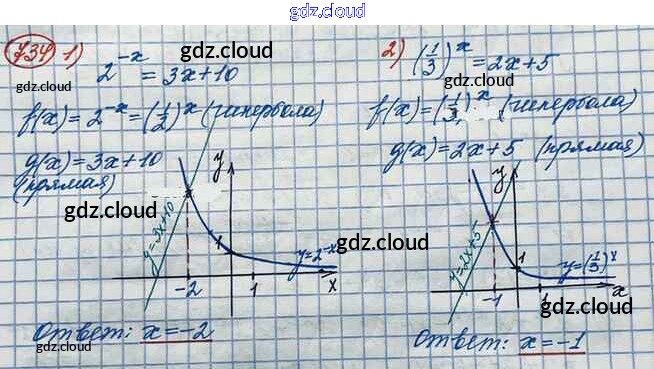 gdz.cloud
734 1) 2^(-x) = 3x+10
gdz.cloud
gdz.cloud
f(x) = 2^(-x) = (1/2)^x (гипербола)
g(x) = 3x+10
(прямая)
gdz.cloud
y
y=3x+10
y=2^(-x)
-2 1 x
gdz.cloud
Ответ: x=-2
gdz.cloud
gdz.cloud
2) (1/3)^x = 2x+5
gdz.cloud
f(x) = (1/3)^x (гипербола)
gdz.cloud
g(x) = 2x+5 (прямая)
gdz.cloud
y
y=2x+5
1
y=(1/3)^x
-1 1 x
gdz.cloud
Ответ: x=-1
gdz.cloud